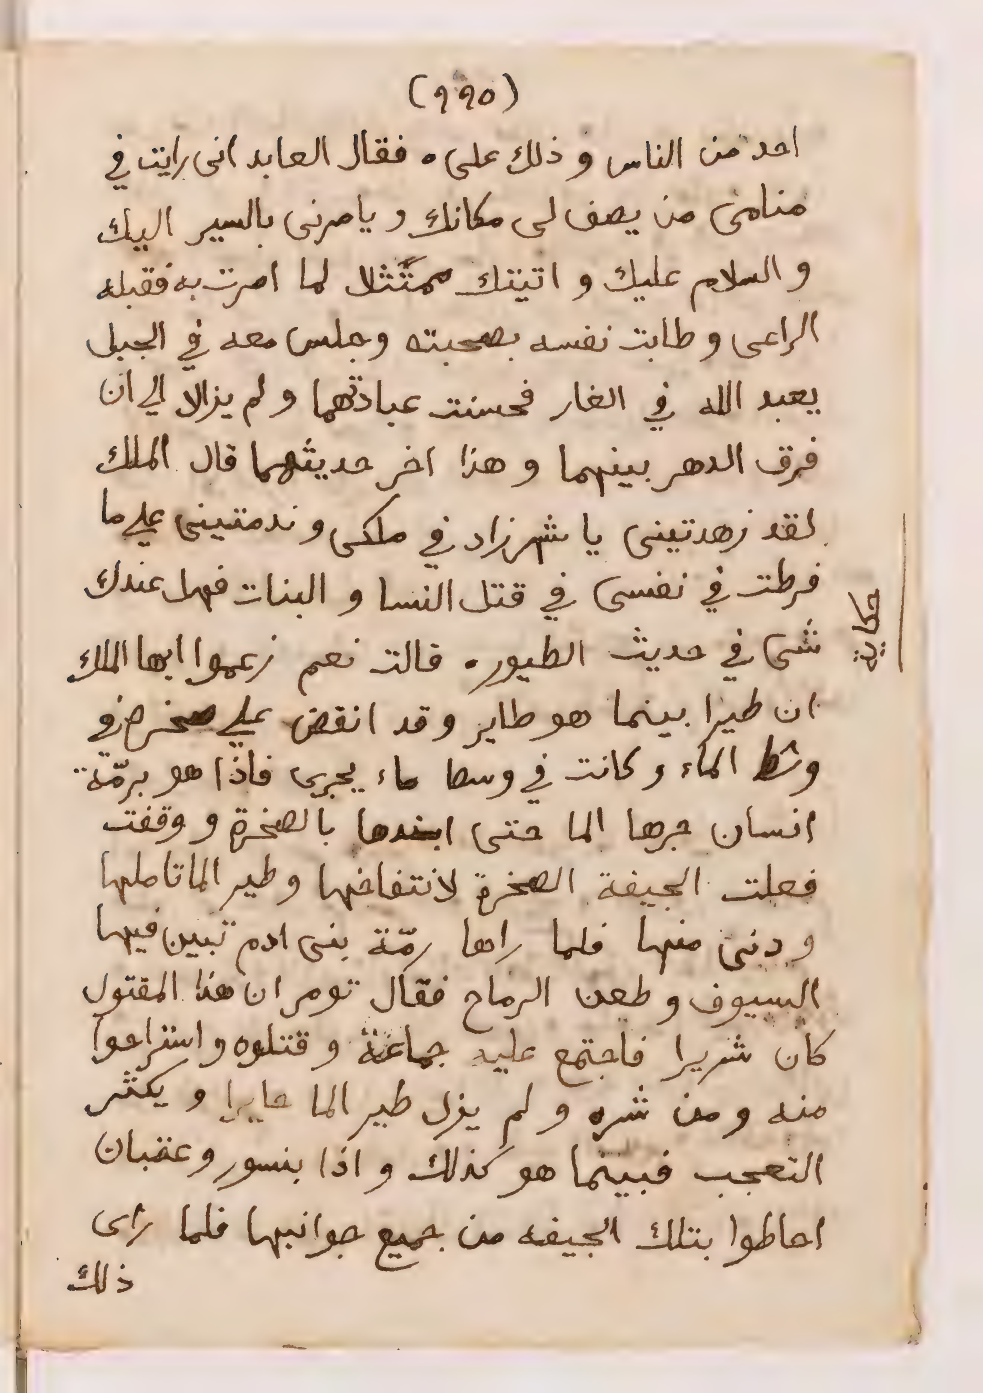 (٩٩٥)
احد من الناس و ذلك على ه فقال العابد انى رايت في
منامى من يصف لى مكانك و يامرنى بالسير اليك
و السلام عليك و اتيتك ممتثلا لما امرت به فقبله
الراعى و طابت نفسه بصحبته وجلس معه في الجبل
يعبد الله في الغار فحسنت عبادتهما و لم يزالا الى ان
فرق الدهر بينهما و هذا اخر حديثهما قال الملك
لقد زهدتينى يا شهرزاد في ملكى و ندمتينى على ما
فرطت في نفسى في قتل النسا و البنات فهل عندك
شى في حديث الطيور ه قالت نعم زعموا ايها الملك
حكاية
ان طيرا بينما هو طاير و قد انقض على صخرة في
وسط الماء و كانت في وسط ماء يجرى فاذا هو برمّة
انسان جرها الما حتى اسندها بالصخرة و وقفت
فعلت الجيفة الصخرة لانتفاخها و طير الما تاملها
و دنى منها فلما راها رمّة بنى ادم تبين فيها
السيوف و طعن الرماح فقال نومر ان هذا المقتول
كان شريرا فاجتمع عليه جماعة و قتلوه و استراحوا
منه و من شره و لم يزل طير الما حايرا و يكثر
التعجب فبينما هو كذلك و اذا بنسور و عقبان
احاطوا بتلك الجيفه من جميع جوانبها فلما راى
ذلك